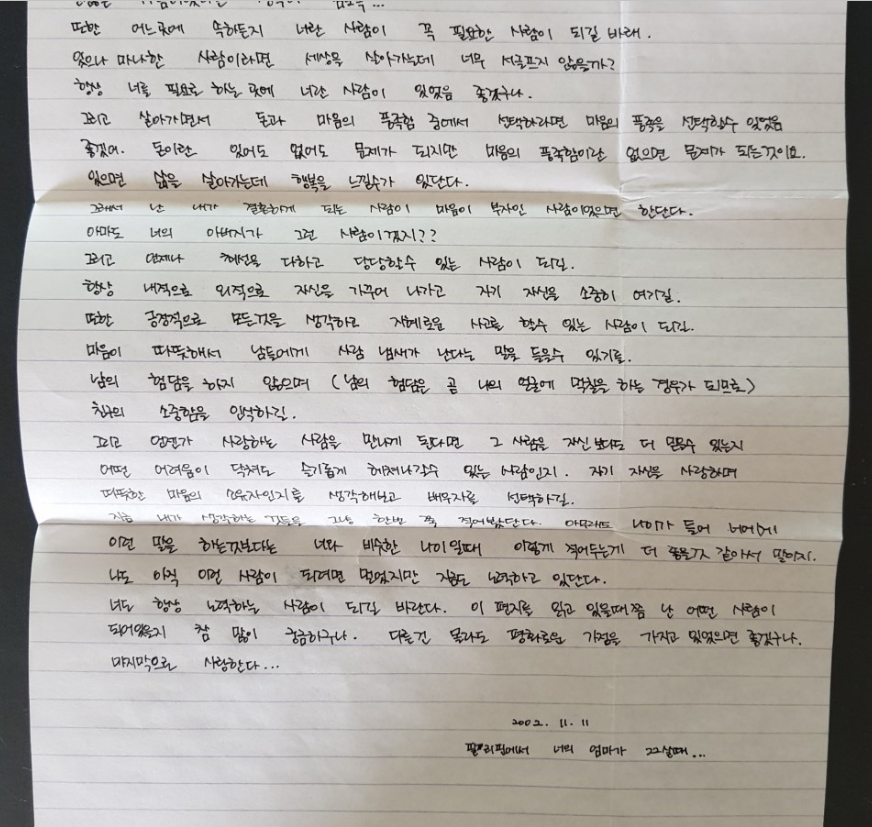 또한 어느곳에 속하든지 너란 사람이 꼭 필요한 사람이 되길 바래.
있으나 마나한 사람이라면 세상을 살아가는데 너무 서글프지 않을까?
항상 너를 필요로 하는 곳에 너란 사람이 있었음 좋겠구나.
그리고 살아가면서 돈과 마음의 풍족함 중에서 선택하라면 마음의 풍족을 선택할수 있었음
좋겠어. 돈이란 있어도 없어도 문제가 되지만 마음의 풍족함이란 없으면 문제가 되는것이요.
있으면 삶을 살아가는데 행복을 느낄수가 있단다.
그래서 난 내가 결혼하게 되는 사람이 마음이 부자인 사람이었으면 한단다.
아마도 너의 아버지가 그런 사람이겠지??
그리고 언제나 최선을 다하고 당당할수 있는 사람이 되길.
항상 내적으로 외적으로 자신을 가꾸어 나가고 자기 자신을 소중히 여기길.
또한 긍정적으로 모든것을 생각하고 지혜로운 사고를 할수 있는 사람이 되길.
마음이 따뜻해서 남들에게 사람 냄새가 난다는 말을 들을수 있기를.
남의 험담을 하지 않으며 (남의 험담은 곧 나의 얼굴에 먹칠을 하는 경우가 되므로)
친구의 소중함을 인식하길.
그리고 언젠가 사랑하는 사람을 만나게 된다면 그 사람을 자신보다도 더 믿을수 있는지
어떤 어려움이 닥쳐도 슬기롭게 헤쳐나갈수 있는 사람인지. 자기 자신을 사랑하며
따뜻한 마음의 소유자인지를 생각해보고 배우자로 선택하길.
지금 내가 생각하는 것들을 그냥 한번 쭉 적어봤단다. 아무래도 나이가 들어 너에게
이런 말을 하는것보다는 너와 비슷한 나이일때 이렇게 적어두는게 더 좋을것 같아서 말이지.
나도 아직 이런 사람이 되려면 멀었지만 지금도 노력하고 있단다.
너도 항상 노력하는 사람이 되길 바란다. 이 편지를 읽고 있을때쯤 난 어떤 사람이
되어있을지 참 많이 궁금하구나. 다른건 몰라도 평화로운 가정을 가지고 있었으면 좋겠구나.
마지막으로 사랑한다...
2002. 11. 11
필리핀에서 너의 엄마가 22살때...